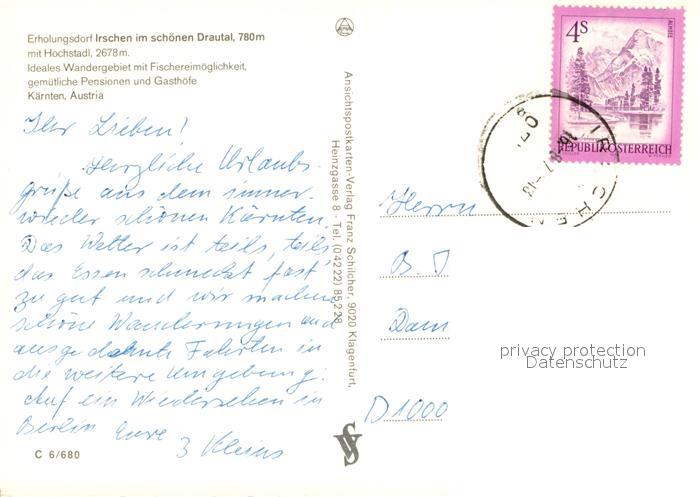 Erholungsdorf Irschen im schönen Drautal, 780m
mit Hochstadl, 2678m.
Ideales Wandergebiet mit Fischereimöglichkeit,
gemütliche Pensionen und Gasthöfe
Kärnten, Austria
Ihr Lieben!
Herzliche Urlaubs-
grüße aus dem immer
wieder schönen Kärnten.
Das Wetter ist teils, teils
das Essen schmeckt fast
zu gut und wir machen
schöne Wanderungen und
ausgedehnte Fahrten in
die weitere Umgebung.
Auf ein Wiedersehen in
Berlin Eure
3 Kleins
C 6/680
Ansichtspostkarten-Verlag Franz Schilcher, 9020 Klagenfurt,
Heinzgasse 8 - Tel. (04222) 85 2 28
4S
ALMSEE
REPUBLIK ÖSTERREICH
Herrn
B J
Dam
D 1000
privacy protection
Datenschutz